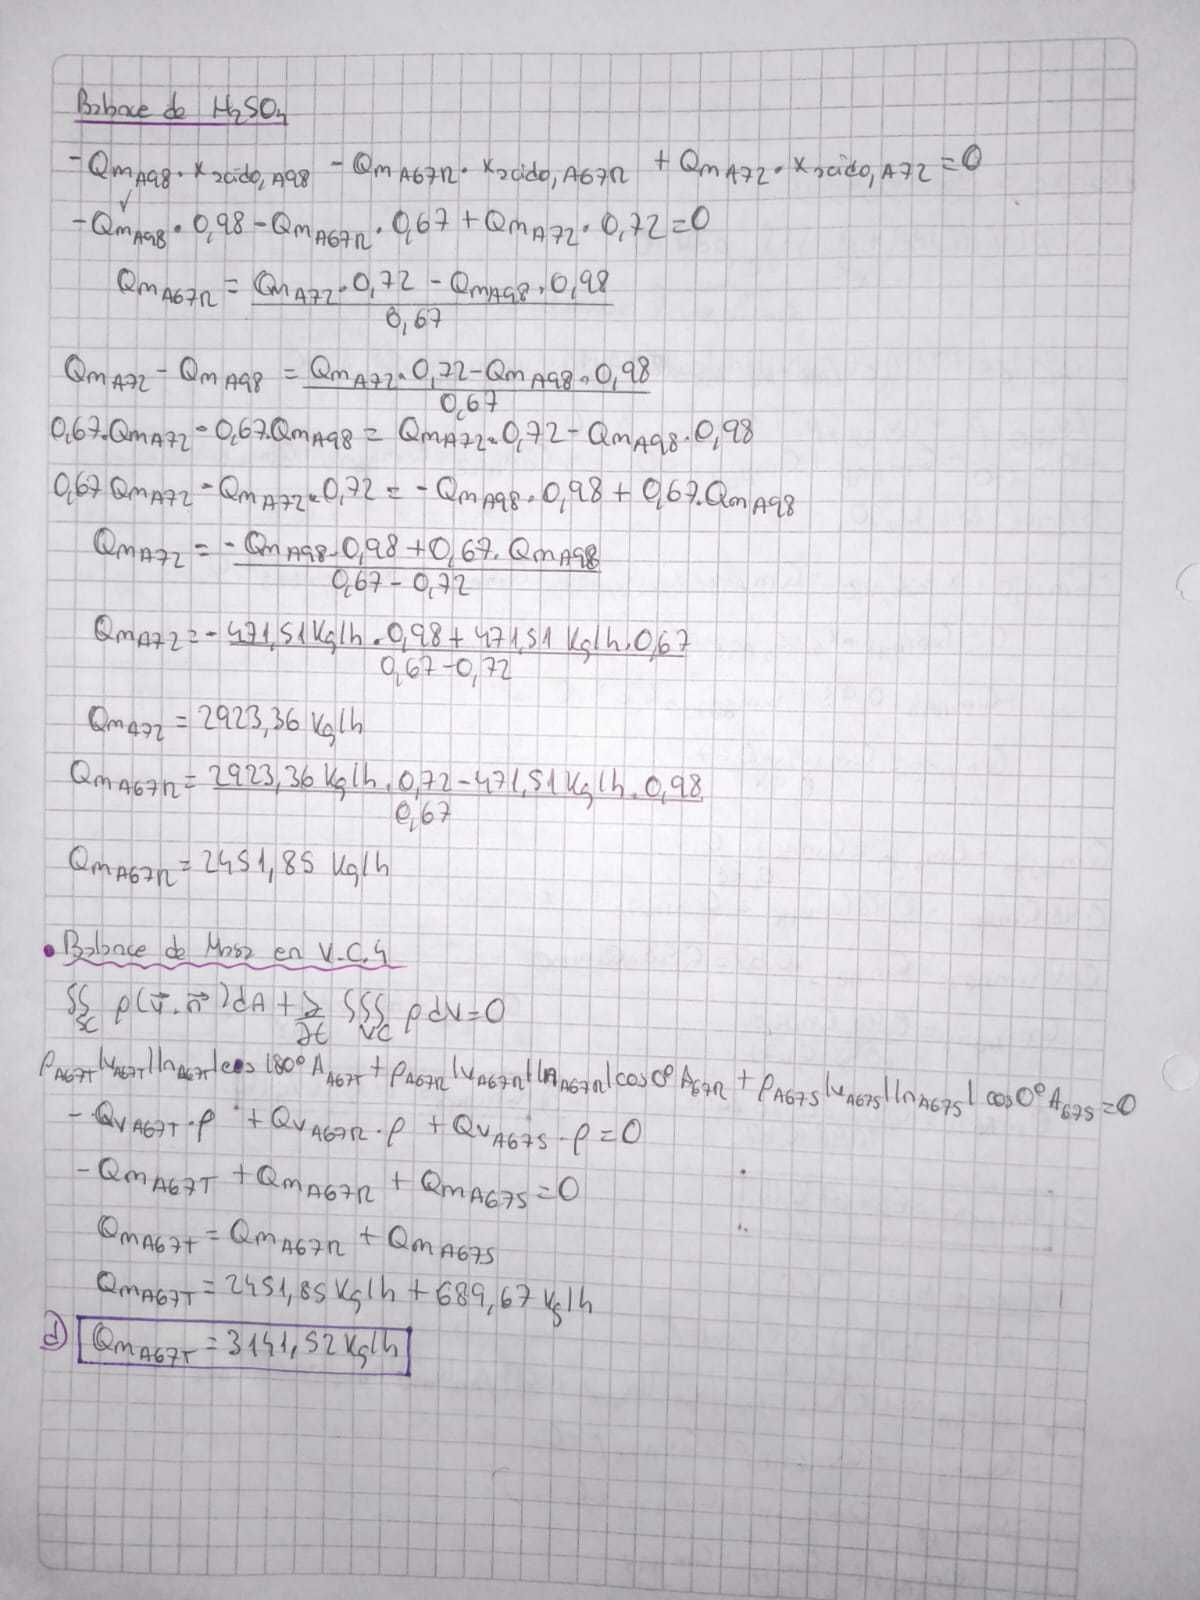 Balance de H2SO4
-QmA98 · xácido,A98 - QmA67R · xácido,A67R + QmA72 · xácido,A72 = 0
-QmA98 · 0,98 - QmA67R · 0,67 + QmA72 · 0,72 = 0
QmA67R = (QmA72 · 0,72 - QmA98 · 0,98) / 0,67
QmA72 - QmA98 = (QmA72 · 0,72 - QmA98 · 0,98) / 0,67
0,67 · QmA72 - 0,67 · QmA98 = QmA72 · 0,72 - QmA98 · 0,98
0,67 QmA72 - QmA72 · 0,72 = -QmA98 · 0,98 + 0,67 · QmA98
QmA72 = (-QmA98 · 0,98 + 0,67 · QmA98) / (0,67 - 0,72)
QmA72 = (-471,51 Kg/h · 0,98 + 471,51 Kg/h · 0,67) / (0,67 - 0,72)
QmA72 = 2923,36 Kg/h
QmA67R = (2923,36 Kg/h · 0,72 - 471,51 Kg/h · 0,98) / 0,67
QmA67R = 2451,85 Kg/h
• Balance de Masa en V.C.4
∫∫SC ρ(v⃗ · n⃗)dA + ∂/∂t ∫∫∫VC ρ dV = 0
ρA67T |vA67T| |nA67T| cos 180° AA67T + ρA67R |vA67R| |nA67R| cos 0° A67R + ρA67S |vA67S| |nA67S| cos 0° A67S = 0
-QvA67T · ρ + QvA67R · ρ + QvA67S · ρ = 0
-QmA67T + QmA67R + QmA67S = 0
QmA67T = QmA67R + QmA67S
QmA67T = 2451,85 Kg/h + 689,67 Kg/h
d) QmA67T = 3141,52 Kg/h